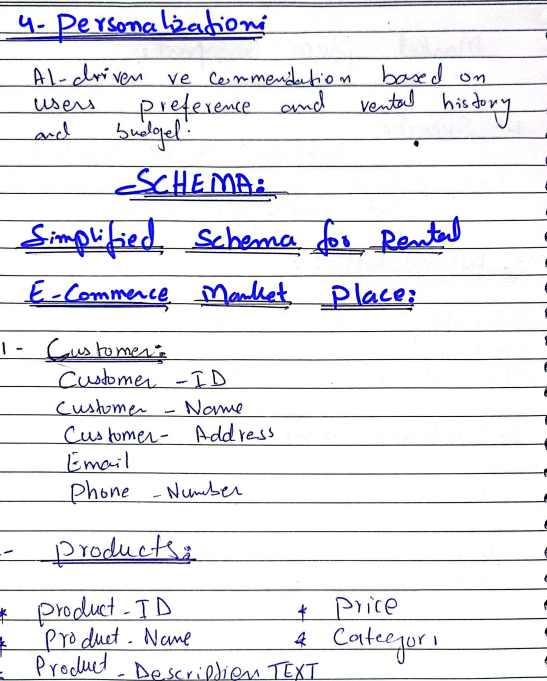 4- Personalization:
AI-driven recommendation based on
users preference and rental history
and budget.
SCHEMA:
Simplified Schema for Rental
E-Commerce Market Place:
1- Customer:
Customer -ID
Customer - Name
Customer- Address
Email
Phone - Number
- Products:
* Product - ID * Price
* Product - Name * Categori
Product - Description TEXT